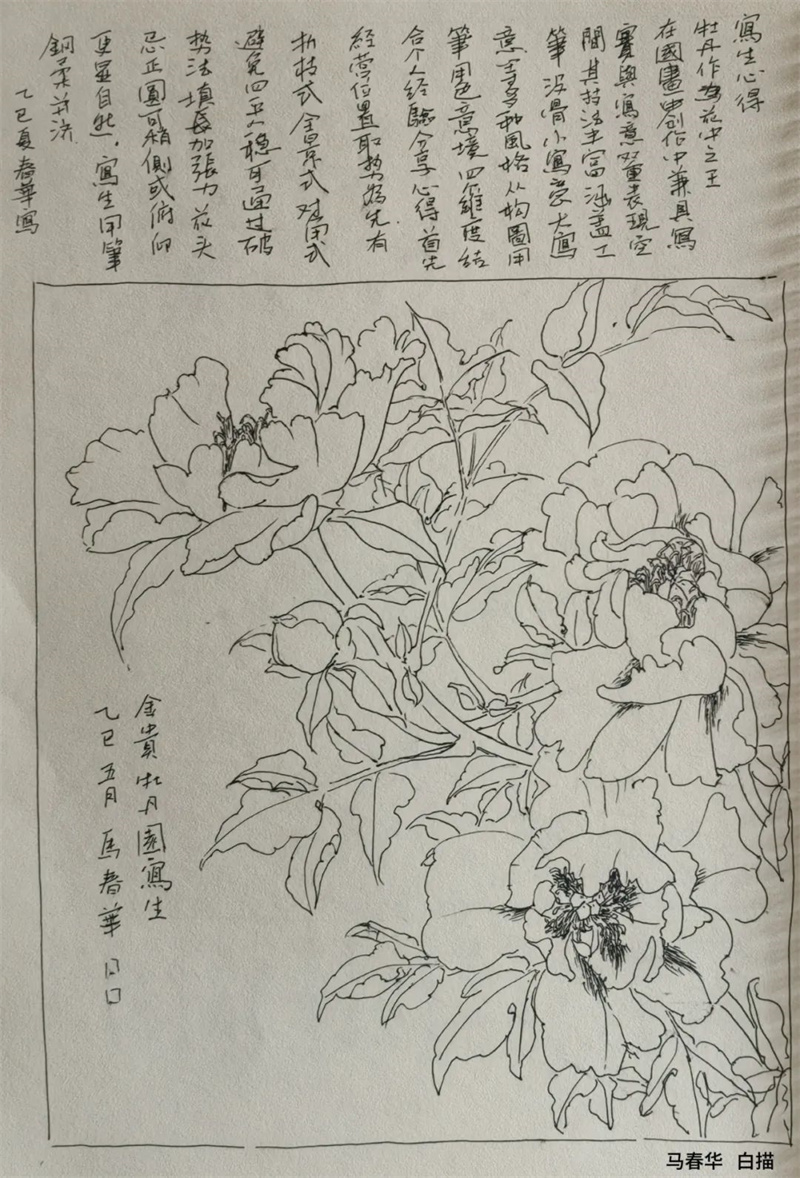 寫生心得
牡丹作为花中之王
在國畫创作中兼具寫
實與寫意双重表現空
間其技法丰富涵盖工
筆没骨小寫意大寫
意等多种風格从构圖用
筆用色意境四維度结
合个人经驗分享心得首先
经营位置取势为先有
折枝式全景式对角式
避免四平八稳可通过破
势法填長加張力花头
忌正圓可稍側或俯仰
更显自然，寫生用筆
钢柔并济
乙巳夏春華寫
金貴牡丹園寫生
乙巳五月馬春華
马春华 白描